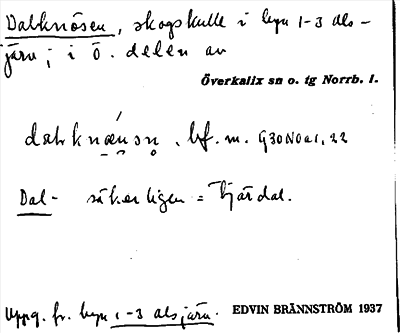 Dalknösen, skogskulle i byn 1-3 als-
järv; i Ö. delen av
Överkalix sn o. tg Norrb. l.
bf. m. G30N0a1,22
Dal- säkerligen = Tjärdal.
Uppg. fr. byn 1-3 alsjärv. EDVIN BRÄNNSTRÖM 1937